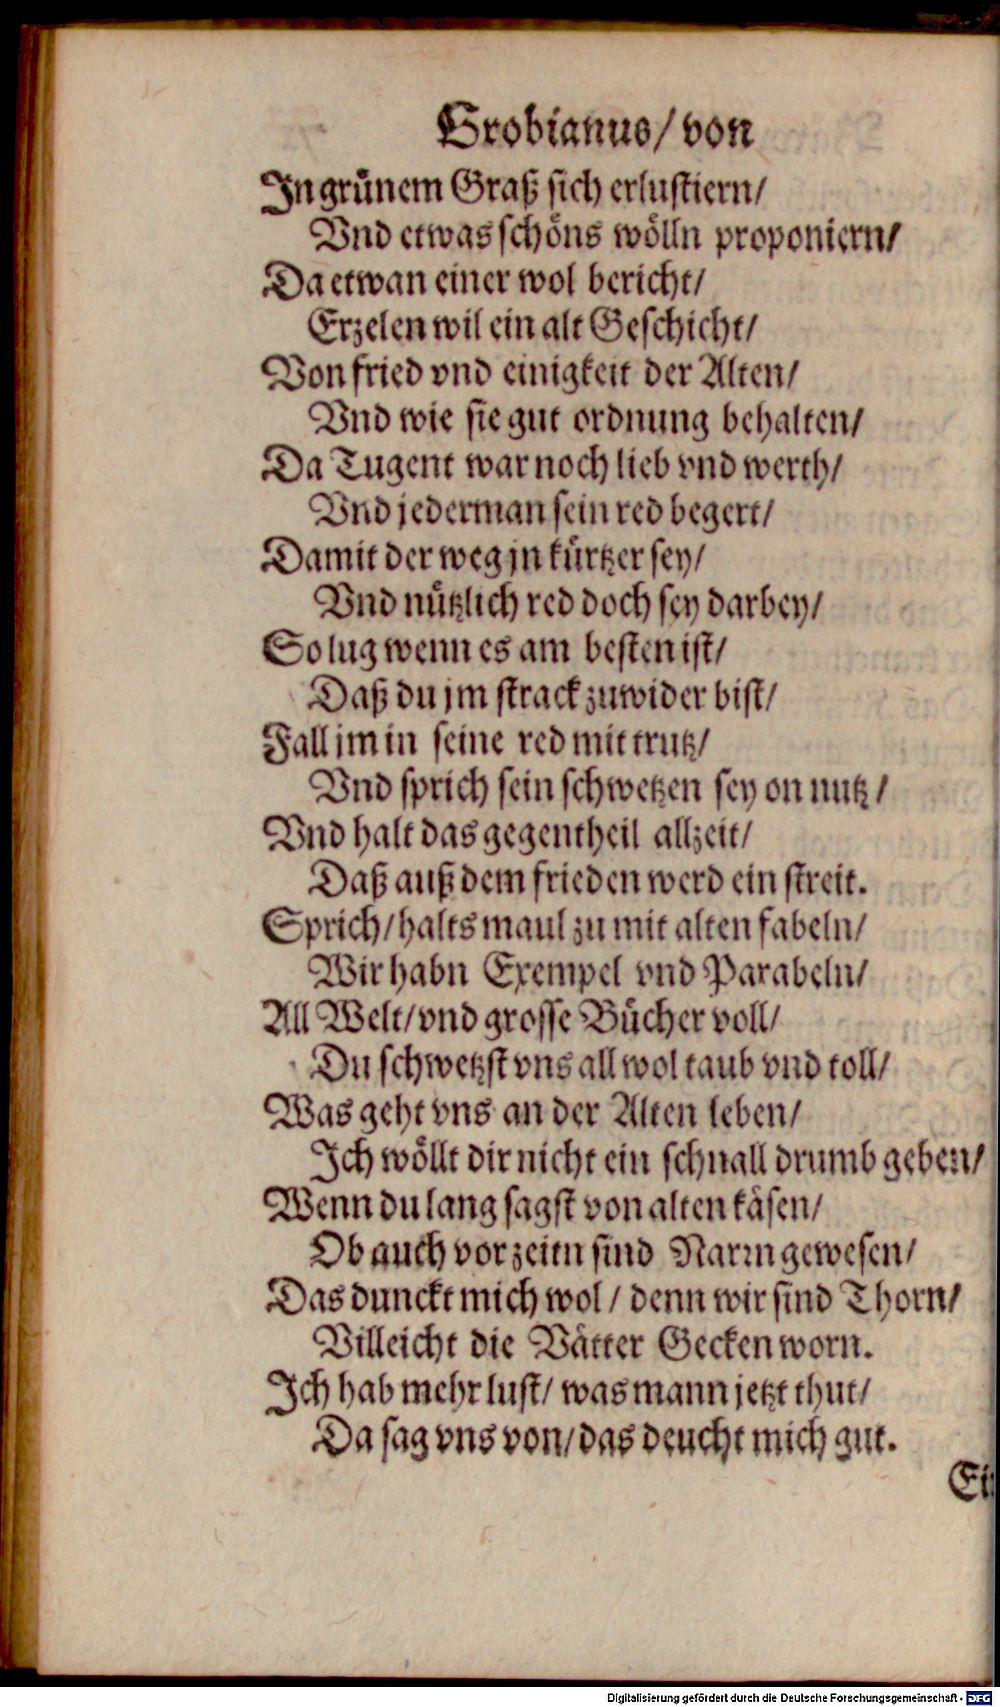 Grobianus/ von
In gruͤnem Graß sich erlustiern/
Vnd etwas schoͤns woͤlln proponiern/
Da etwan einer wol bericht/
Erzelen wil ein alt Geschicht/
Von fried vnd einigkeit der Alten/
Vnd wie sie gut ordnung behalten/
Da Tugent war noch lieb vnd werth/
Vnd jederman sein red begert/
Damit der weg jn kuͤrtzer sey/
Vnd nuͤtzlich red doch sey darbey/
So lug wenn es am besten ist/
Daß du jm strack zuwider bist/
Fall jm in seine red mit trutz/
Vnd sprich sein schwetzen sey on nutz/
Vnd halt das gegentheil allzeit/
Daß auß dem frieden werd ein streit.
Sprich/ halts maul zu mit alten fabeln/
Wir habn Exempel vnd Parabeln/
All Welt/ vnd grosse Buͤcher voll/
Du schwetzst vns all wol taub vnd toll/
Was geht vns an der Alten leben/
Ich woͤllt dir nicht ein schnall drumb geben/
Wenn du lang sagst von alten kaͤsen/
Ob auch vor zeitn sind Narrn gewesen/
Das dunckt mich wol/ denn wir sind Thorn/
Villeicht die Vaͤtter Gecken worn.
Ich hab mehr lust/ was mann jetzt thut/
Da sag vns von/ das deucht mich gut.
Ei
Digitalisierung gefördert durch die Deutsche Forschungsgemeinschaft - DFG